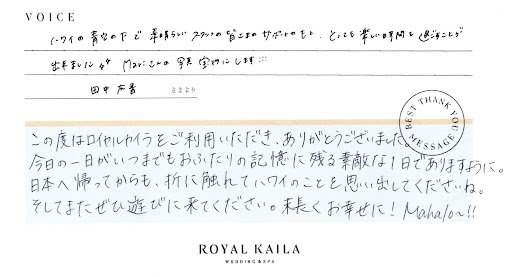 VOICE
ハワイの青空の下で素晴らしいスタッフの皆さまのサポートのもと、とっても楽しい時間を過ごすことが
出来ました!! Mariさんの写真宝物にします!!!
田中 さまより
BEST THANK YOU MESSAGE
この度はロイヤルカイラをご利用いただき、ありがとうございました。
今日の一日がいつまでもおふたりの記憶に残る素敵な1日でありますように。
日本へ帰ってからも、折に触れてハワイのことを思い出してくださいね。
そしてまたぜひ遊びに来てください。末長くお幸せに! Mahalo~!!
ROYAL KAILA
WEDDING & SPA